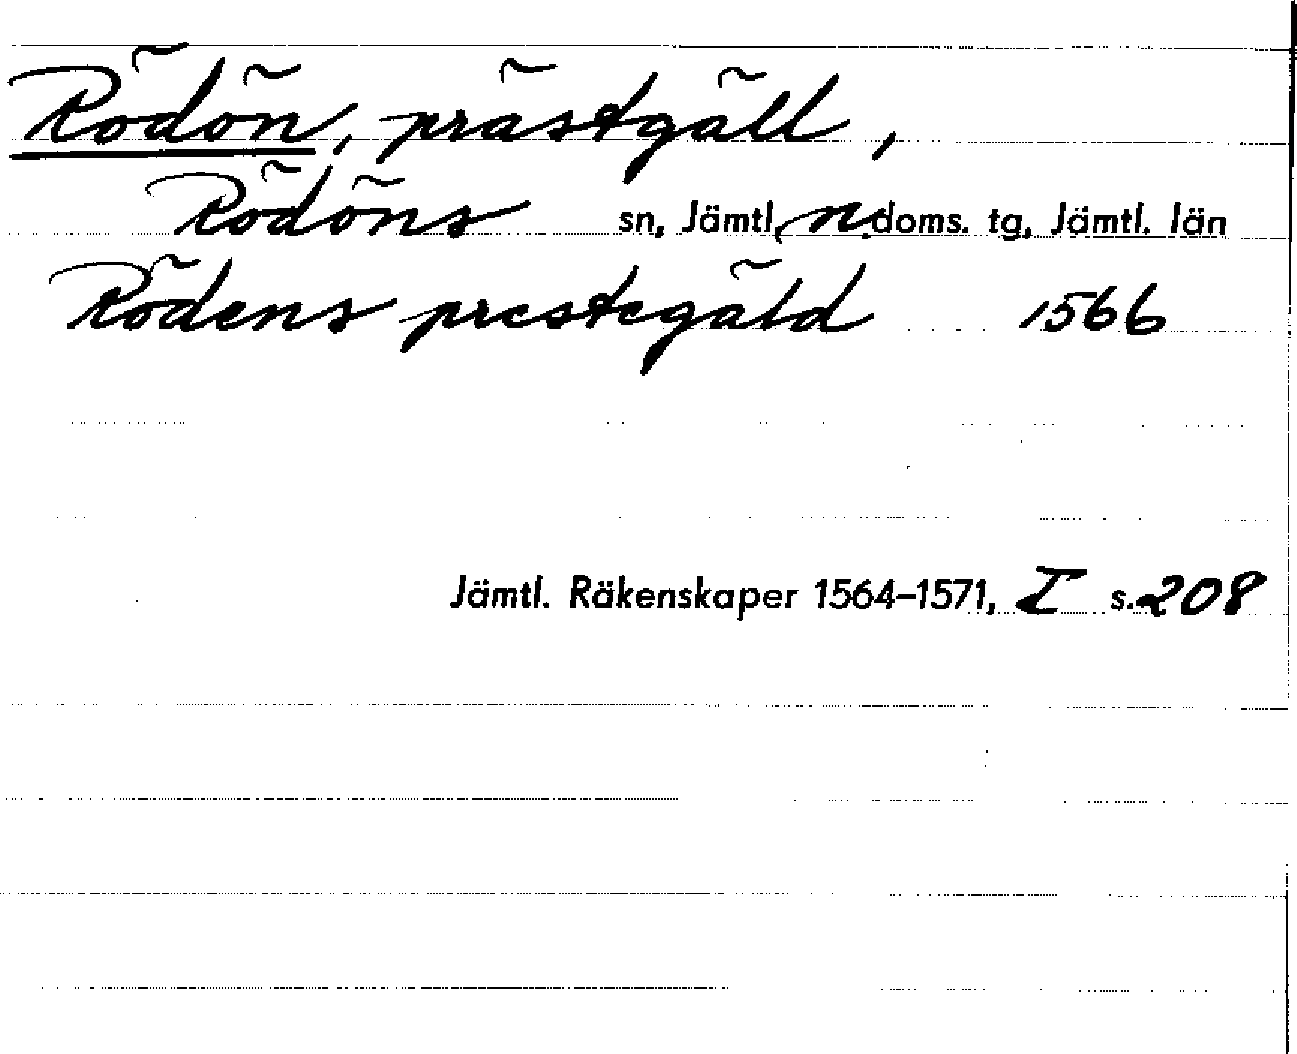 Rödön, prästgäll,
Rödöns sn, Jämtl. n. doms. tg, Jämtl. län
Rödens prestegäld 1566
Jämtl. Räkenskaper 1564–1571, I s. 208